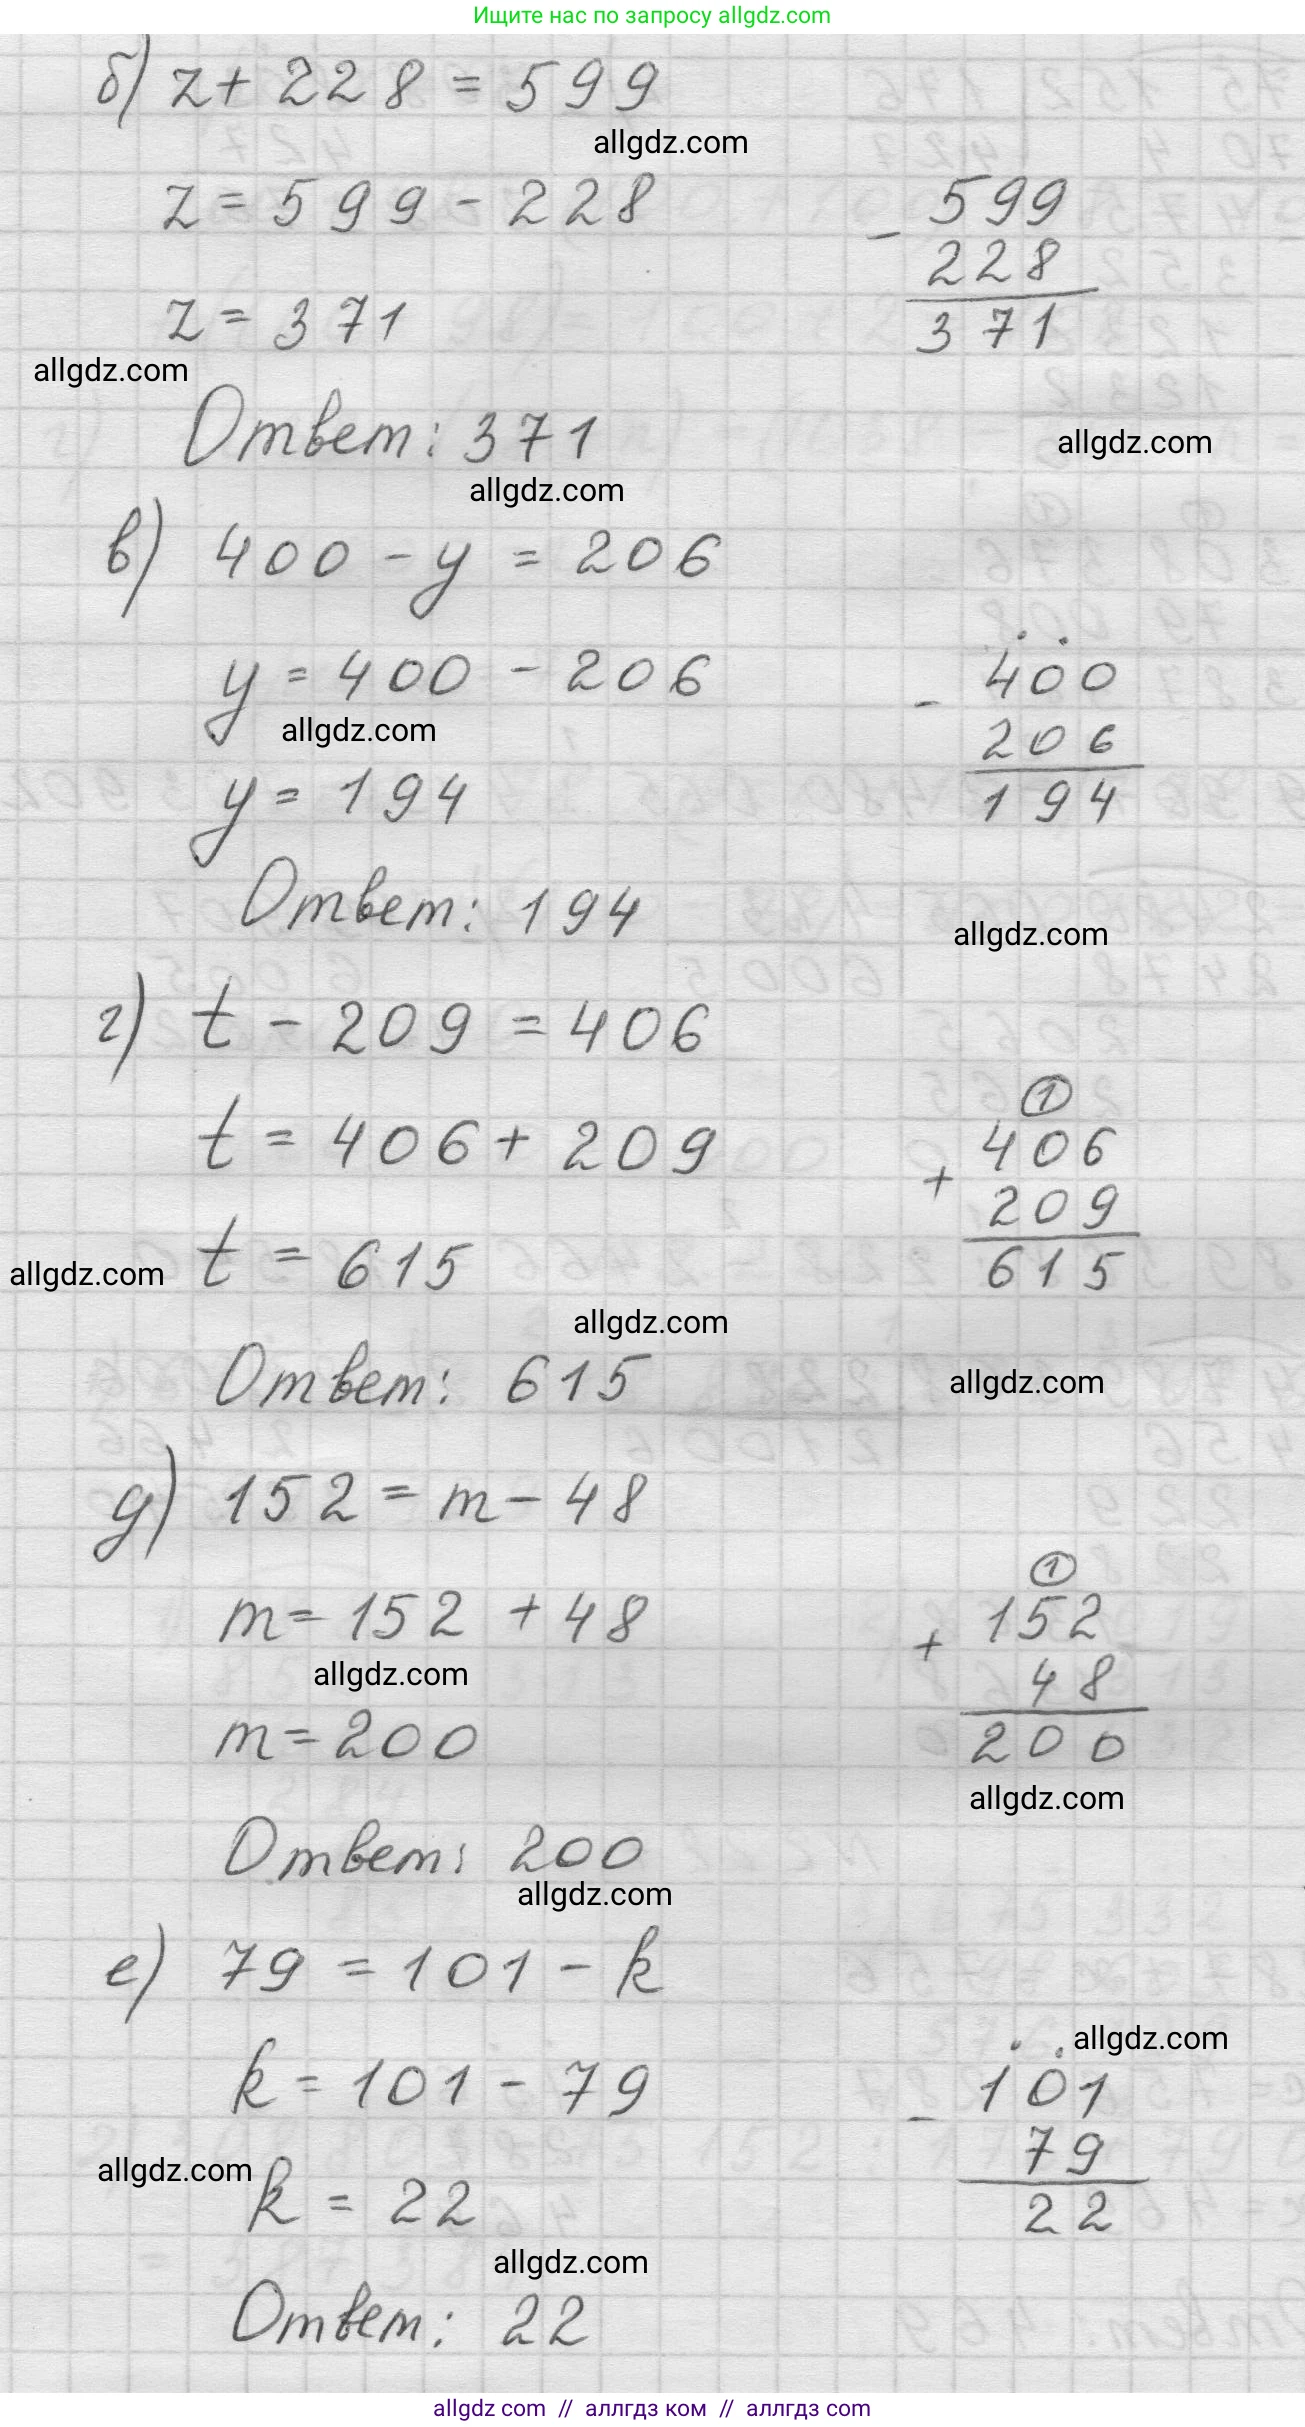 Ищите нас по запросу allgdz.com
б) z + 228 = 599
allgdz.com
z = 599 - 228
z = 371
- 599
228
371
allgdz.com
Ответ: 371
allgdz.com
allgdz.com
в) 400 - y = 206
y = 400 - 206
allgdz.com
y = 194
- 400
206
194
Ответ: 194
allgdz.com
г) t - 209 = 406
t = 406 + 209
t = 615
1
+ 406
209
615
allgdz.com
allgdz.com
Ответ: 615
allgdz.com
д) 152 = m - 48
m = 152 + 48
allgdz.com
m = 200
1
+ 152
48
200
allgdz.com
Ответ: 200
allgdz.com
е) 79 = 101 - k
allgdz.com
k = 101 - 79
allgdz.com
k = 22
- 101
79
22
allgdz.com
Ответ: 22
allgdz com // аллгдз ком // аллгдз com